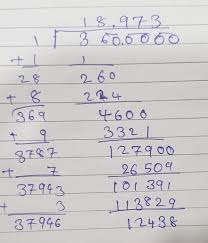 18.973
1 360.0000
+ 1 1
28 260
+ 8 224
369 4600
+ 9 3321
3787 127900
+ 7 26509
37943 101391
+ 3 113829
37946 12438